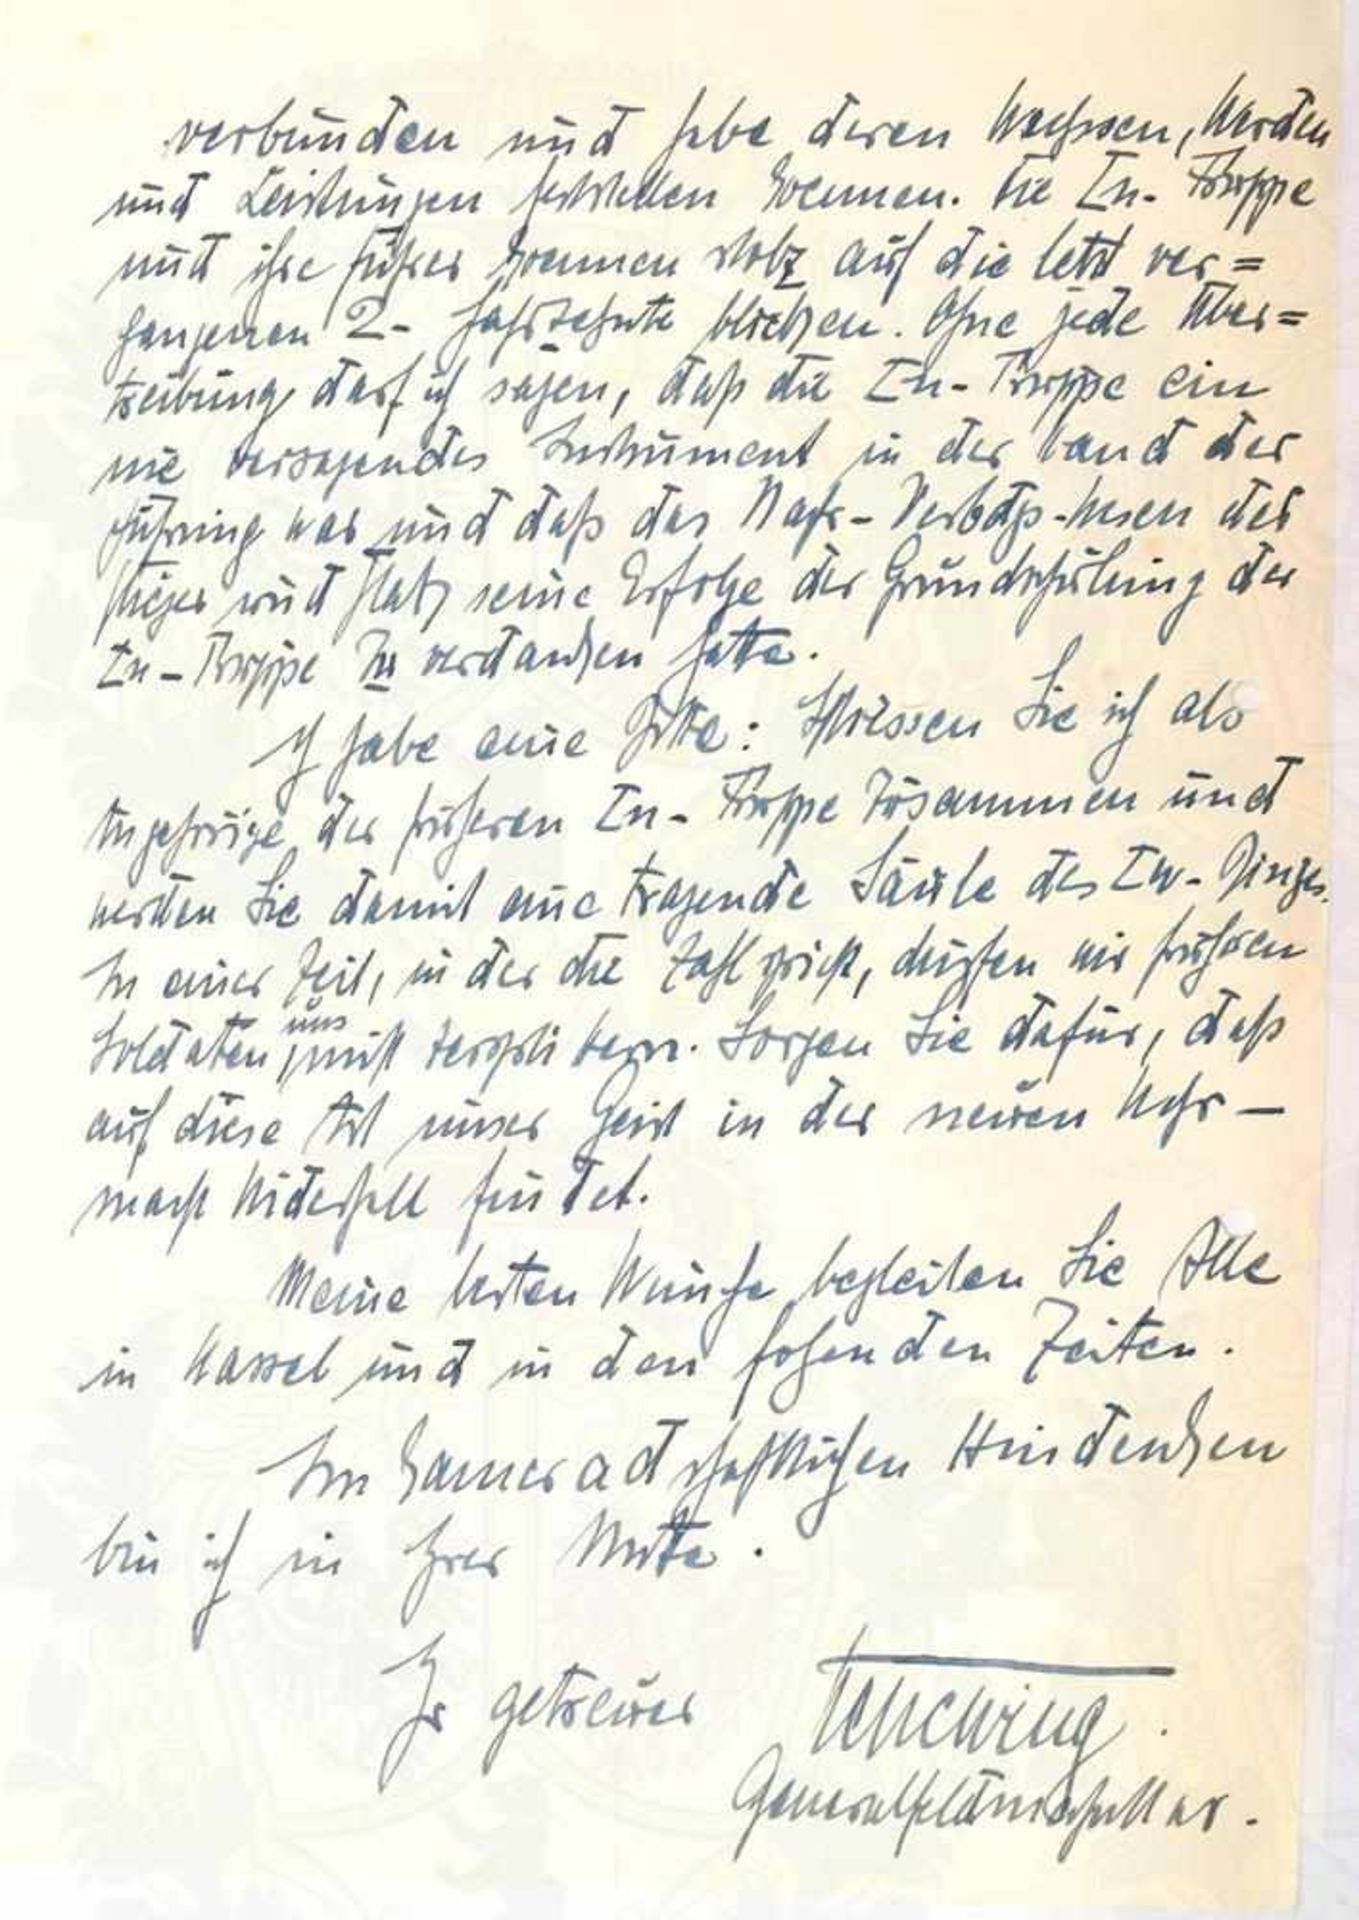 verbunden und habe deren Wachsen, Werden
und Leistungen feststellen koennen. Die Ln-Truppe
und ihre Führer koennen stolz auf die letzt ver=
gangenen 2- Jahrzehnte blicken. Ohne jede Über=
treibung darf ich sagen, daß die Ln-Truppe ein
nie versagendes Instrument in der Hand der
Führung war und daß das Nachr-Verbdgs-Wesen des
seine Erfolge der Grundschulung der
Ln-Truppe zu verdanken hatte.
Ich habe eine Bitte: Schliessen Sie sich als
Angehörige der früheren Ln-Truppe zusammen und
werden Sie damit eine tragende Säule des Lw-Ringes.
In einer Zeit, in der die Zahl spricht, dürfen wir früheren
Soldaten uns nicht zersplittern. Sorgen Sie dafür, daß
auf diese Art unser Geist in der neuen Wehr-
macht Widerhall findet.
Meine besten Wünsche begleiten Sie Alle
in Kassel und in den folgenden Zeiten.
Im kameradschaftlichen Hindenken
bin ich in Ihrer Mitte.
Ihr getreuer Kesselring.
Generalfeldmarschall a.